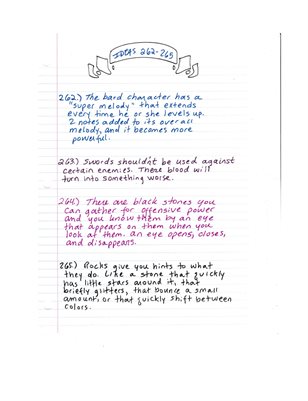 IDEAS 262-265
262.) The bard character has a
"super melody" that extends
every time he or she levels up.
2 notes added to its overall
melody, and it becomes more
powerful.
263.) Swords shouldn't be used against
certain enemies. There blood will
turn into something worse.
264.) There are black stones you
can gather for offensive power
and you know them by an eye
that appears on them when you
look at them. an eye opens, closes,
and disappears.
265.) Rocks give you hints to what
they do. Like a stone that quickly
has little stars around it, that
briefly glitters, that bounce a small
amount, or that quickly shift between
colors.